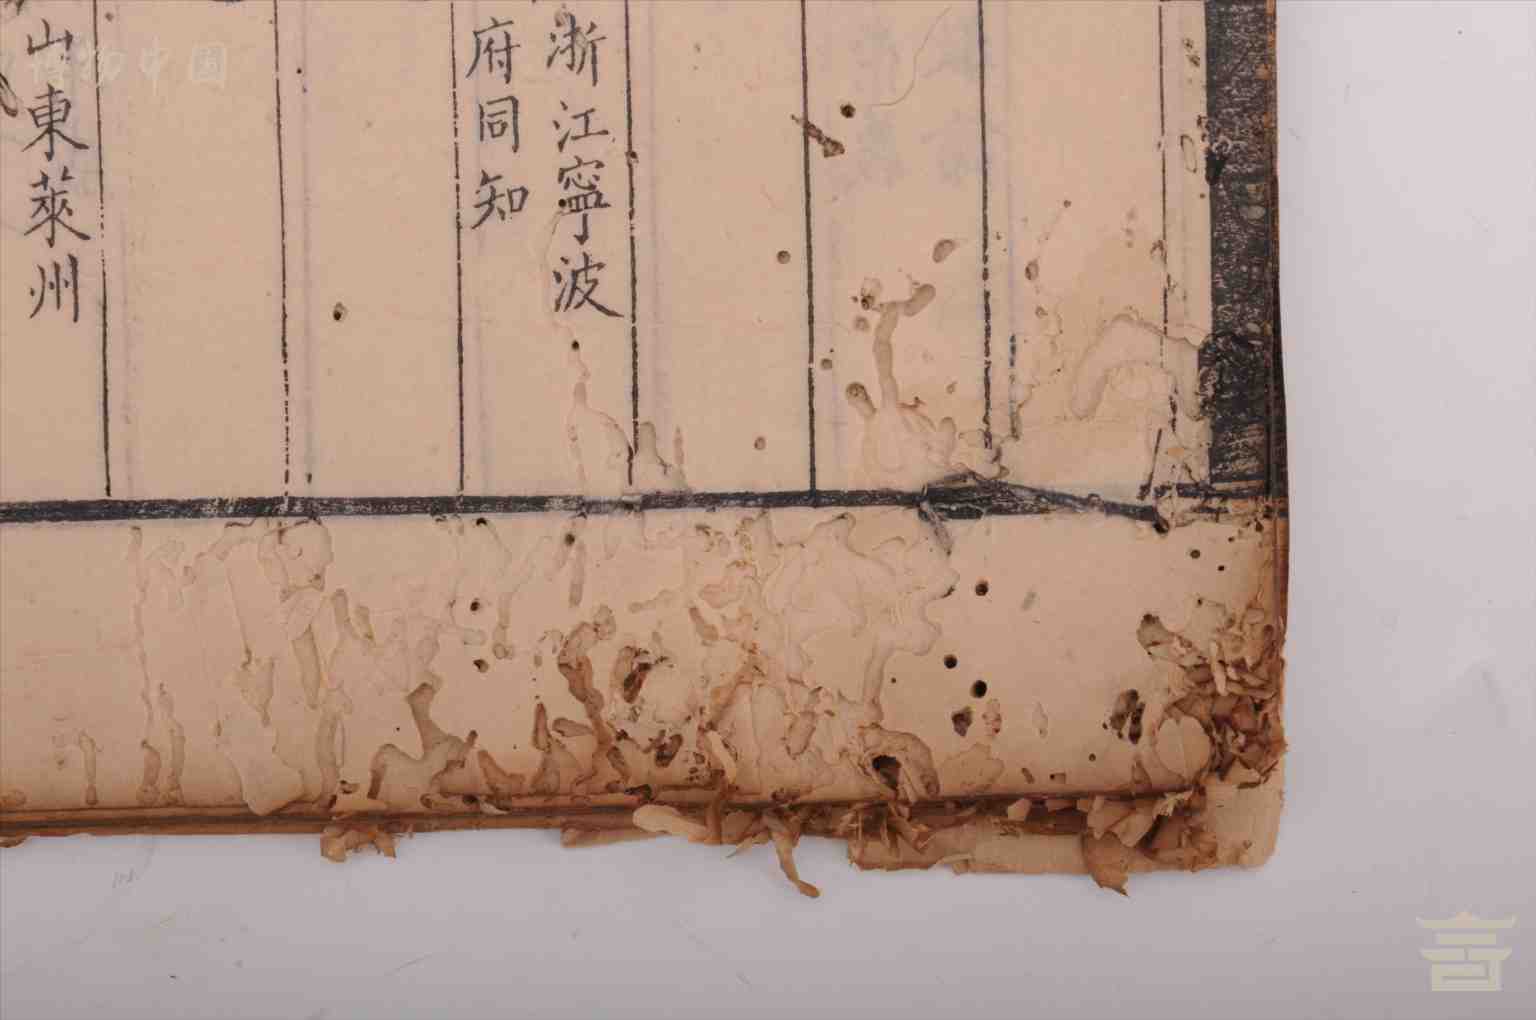 浙江寧波
府同知
山東萊州
博物中國